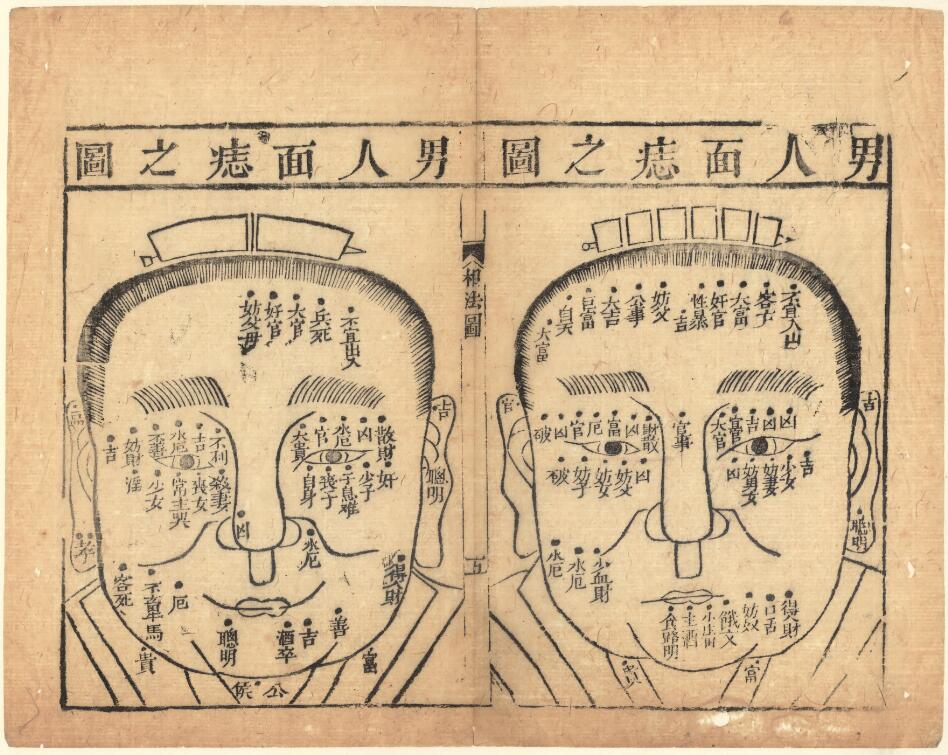 男人面痣之圖
不宜入山
客亡
大富
奸官
性暴
吉
妨父
公事
大吉
巨富
自吳
大富
官
吉
大官
官
吉
凶
凶
官事
散財
凶
富
厄
官
凶
破
吉
少女
妨妻
妨男女
凶
凶
妨父
妨女
妨子
破
聰明
少血財
水厄
水厄
得財
口舌
妨奴
餓文
小生財
主酒
食路明
富
貴
相法圖
五
男人面痣之圖
不宜出入
兵死
大官
奸官
妨父母
吉
散財
凶
水厄
官
大貴
奸
少子
子息难
喪子
自身
不利
吉
水厄
妨妻
妨財
吉
殺妻
喪女
常主哭
少女
淫
聰明
孝
凶
水厄
得財
厄
不宜車馬
客死
善
吉
酒卒
聰明
貴
富
公侯